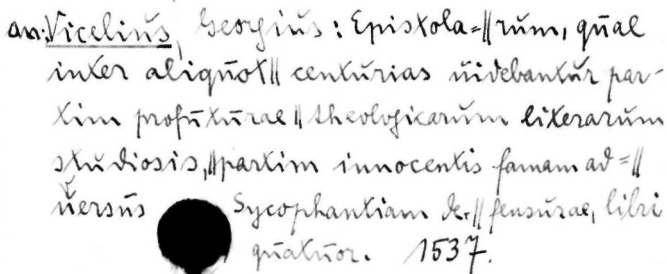 an: Vicelius, Georgius: Epistola=||rum, quae
inter aliquot|| centurias uidebantur par-
tim profuturae || theologicarum literarum
studiosis, ||partim innocentis famam ad=||
uersus Sycophantiam de-||fensurae, libri
quatuor. 1537.